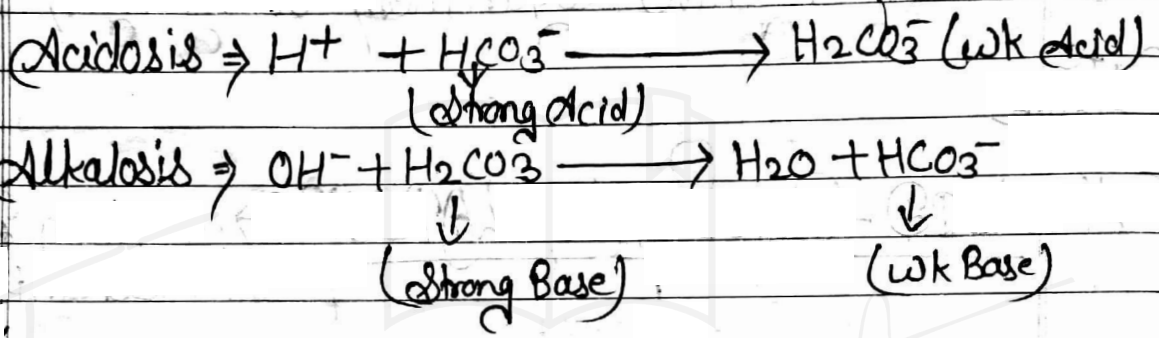 Acidosis ⇒ H+ + HCO3⁻ ⟶ H2CO3⁻ (wk Acid)
↓
(Strong Acid)
Alkalosis ⇒ OH⁻ + H2CO3 ⟶ H2O + HCO3⁻
↓ ↓
(Strong Base) (wk Base)